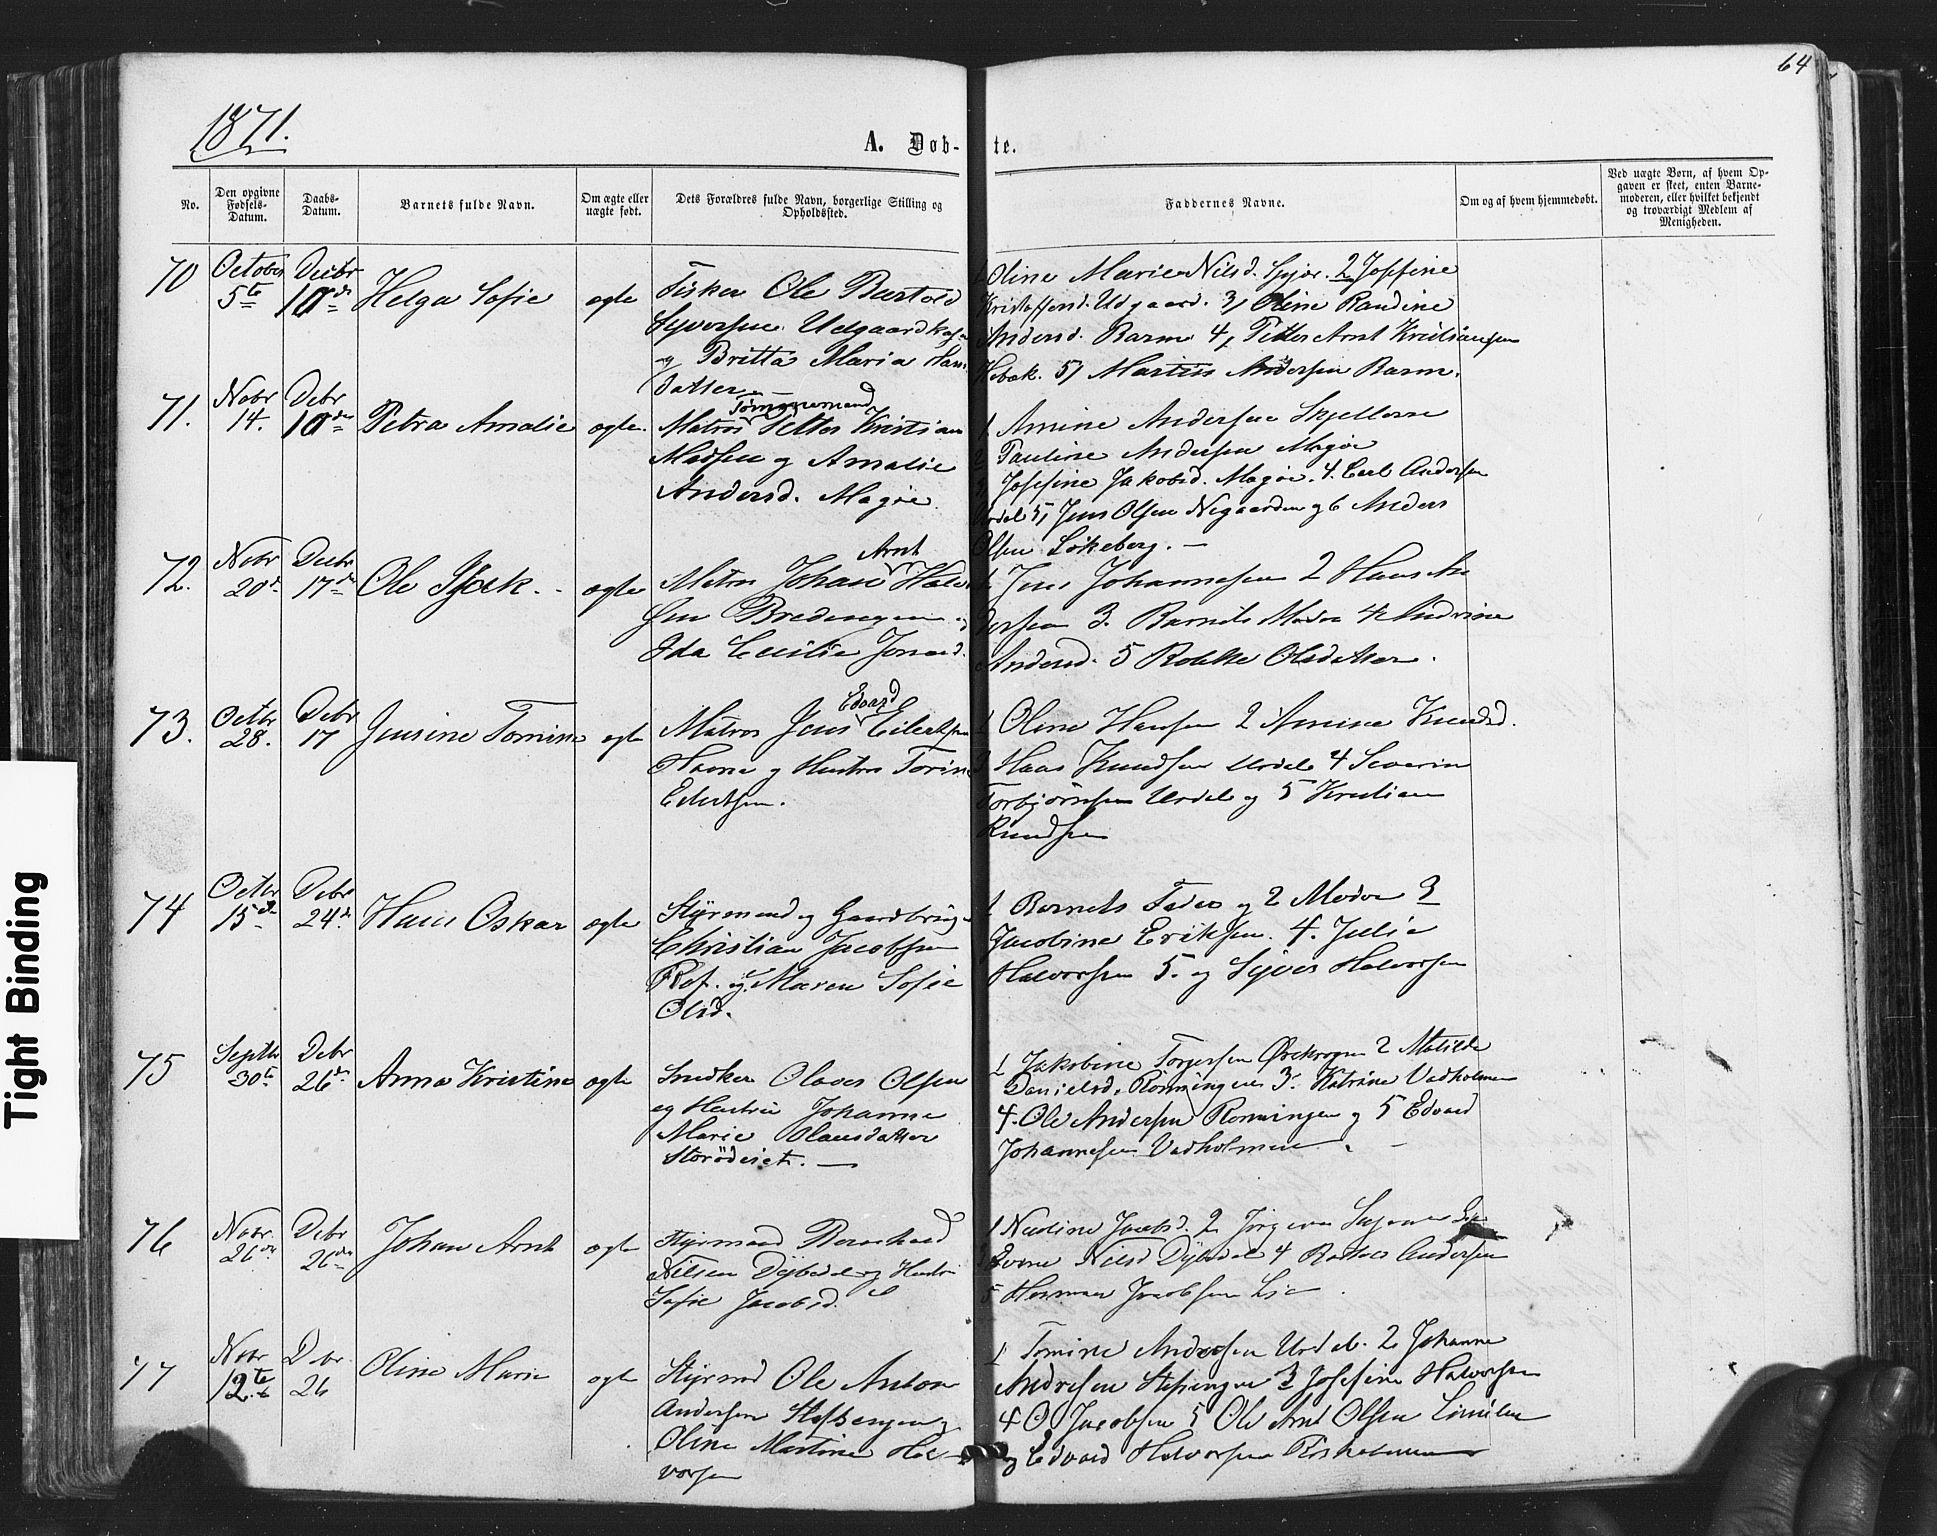 64
1871.
A. Døb- te.
No.
Den opgivne Fødsels-Datum.
Daabs-Datum.
Barnets fulde Navn.
Om ægte eller uægte født.
Dets Forældres fulde Navn, borgerlige Stilling og Opholdssted.
Faddernes Navne.
Om og af hvem hjemmedøbt.
Ved uægte Børn, af hvem Opgaven er skeet, enten Barnemoderen, eller hvilket bekjendt og troværdigt Medlem af Menigheden.
70 October 5te Decbr 10de Helga Sofie ægte
Fisker Ole Bertod
Syversen Udgaardkas
og Britta Maria Hans
datter
Oline Marie Nilsd. 2 Josefine
Kristoffersd. Udgaard. 3, Oline Randine
Andersd. Barm 4, Petter Arnt Kristiansen
Hebæk. 5, Martin Andersen Barm.
71. Novbr 14. Debr 10de Petra Amalie ægte
Tømmermand
Matros Petter Kristian
Madsen og Amalie
Andersd. Magøe
1 Amine Andersen
Pauline Andersen Magøe
Josefine Jakobsd. Magøe. 4. Carl Andersen
Urdal 5, Jens Olsen Nigaarden og 6 Anders
Olsen Løkeberg. —
72. Novbr 20de Decbr 17de Ole ægte
Arnt
Matros Johan Halv
sen
Ida Cecilie
1 Jens Johannesen 2 Hans An
dersen 3. Barnets Moder 4 Andrine
Andersd. 5 Rakke Olsdatter.
73. Octbr 28. Debr 17 Jensine Tomine ægte
Edvard
Matros Jens Eilertsen
Havne og Hustru Torine
Eilertsen.
1 Oline Hansen 2 Amine Knudsd.
Haas Knudsen Urdal 4 Severin
Torbjørnsen Urdal og 5 Kristian
Knudsen
74 Octbr 15de Debr 24de Hans Oskar ægte
Styrmand og Gaardbruger
Christian Jacobsen
Rof. og Maren Sofie
Olsd.
1 Barnets Fader og 2 Moder 3
Jacobine Eriksen. 4. Julie
Halvorsen 5. og Syver Halvorsen
75 Septbr 30te Debr 26de Anna Kristine ægte
Snedker Olaves Olsen
og Hustru Johanne
Marie Olausdatter
Storødeiet. —
1 Jakobine Torgersen Ørekrogen 2 Matilde
Danielsd. Rønningen 3. Katrine Vadholmen
4. Ole Andersen Rønningen og 5 Edvard
Johannesen Vadholmen
76 Novbr 26de Debr 26de Johan Arnt ægte
Styrmand Bernhard
Nilsen Dybedal og Hustru
Sofie Jacobsd.
1 Nicoline Jacobsd. 2
Nilsd Dybedal 4 Andersen
5 Herman Jacobsen Lie
77 Novbr 12te Debr 26 Oline Marie ægte
Styrmd Ole Anton
Andersen og
Oline Martine Hal
vorsen
1 Tomine Andersen Urdal. 2 Johanne
Andresen 3 Josefine Halvorsen
4 O Jacobsen 5 Ole Arnt Olsen
og Edvard Halvorsen
Tight Binding